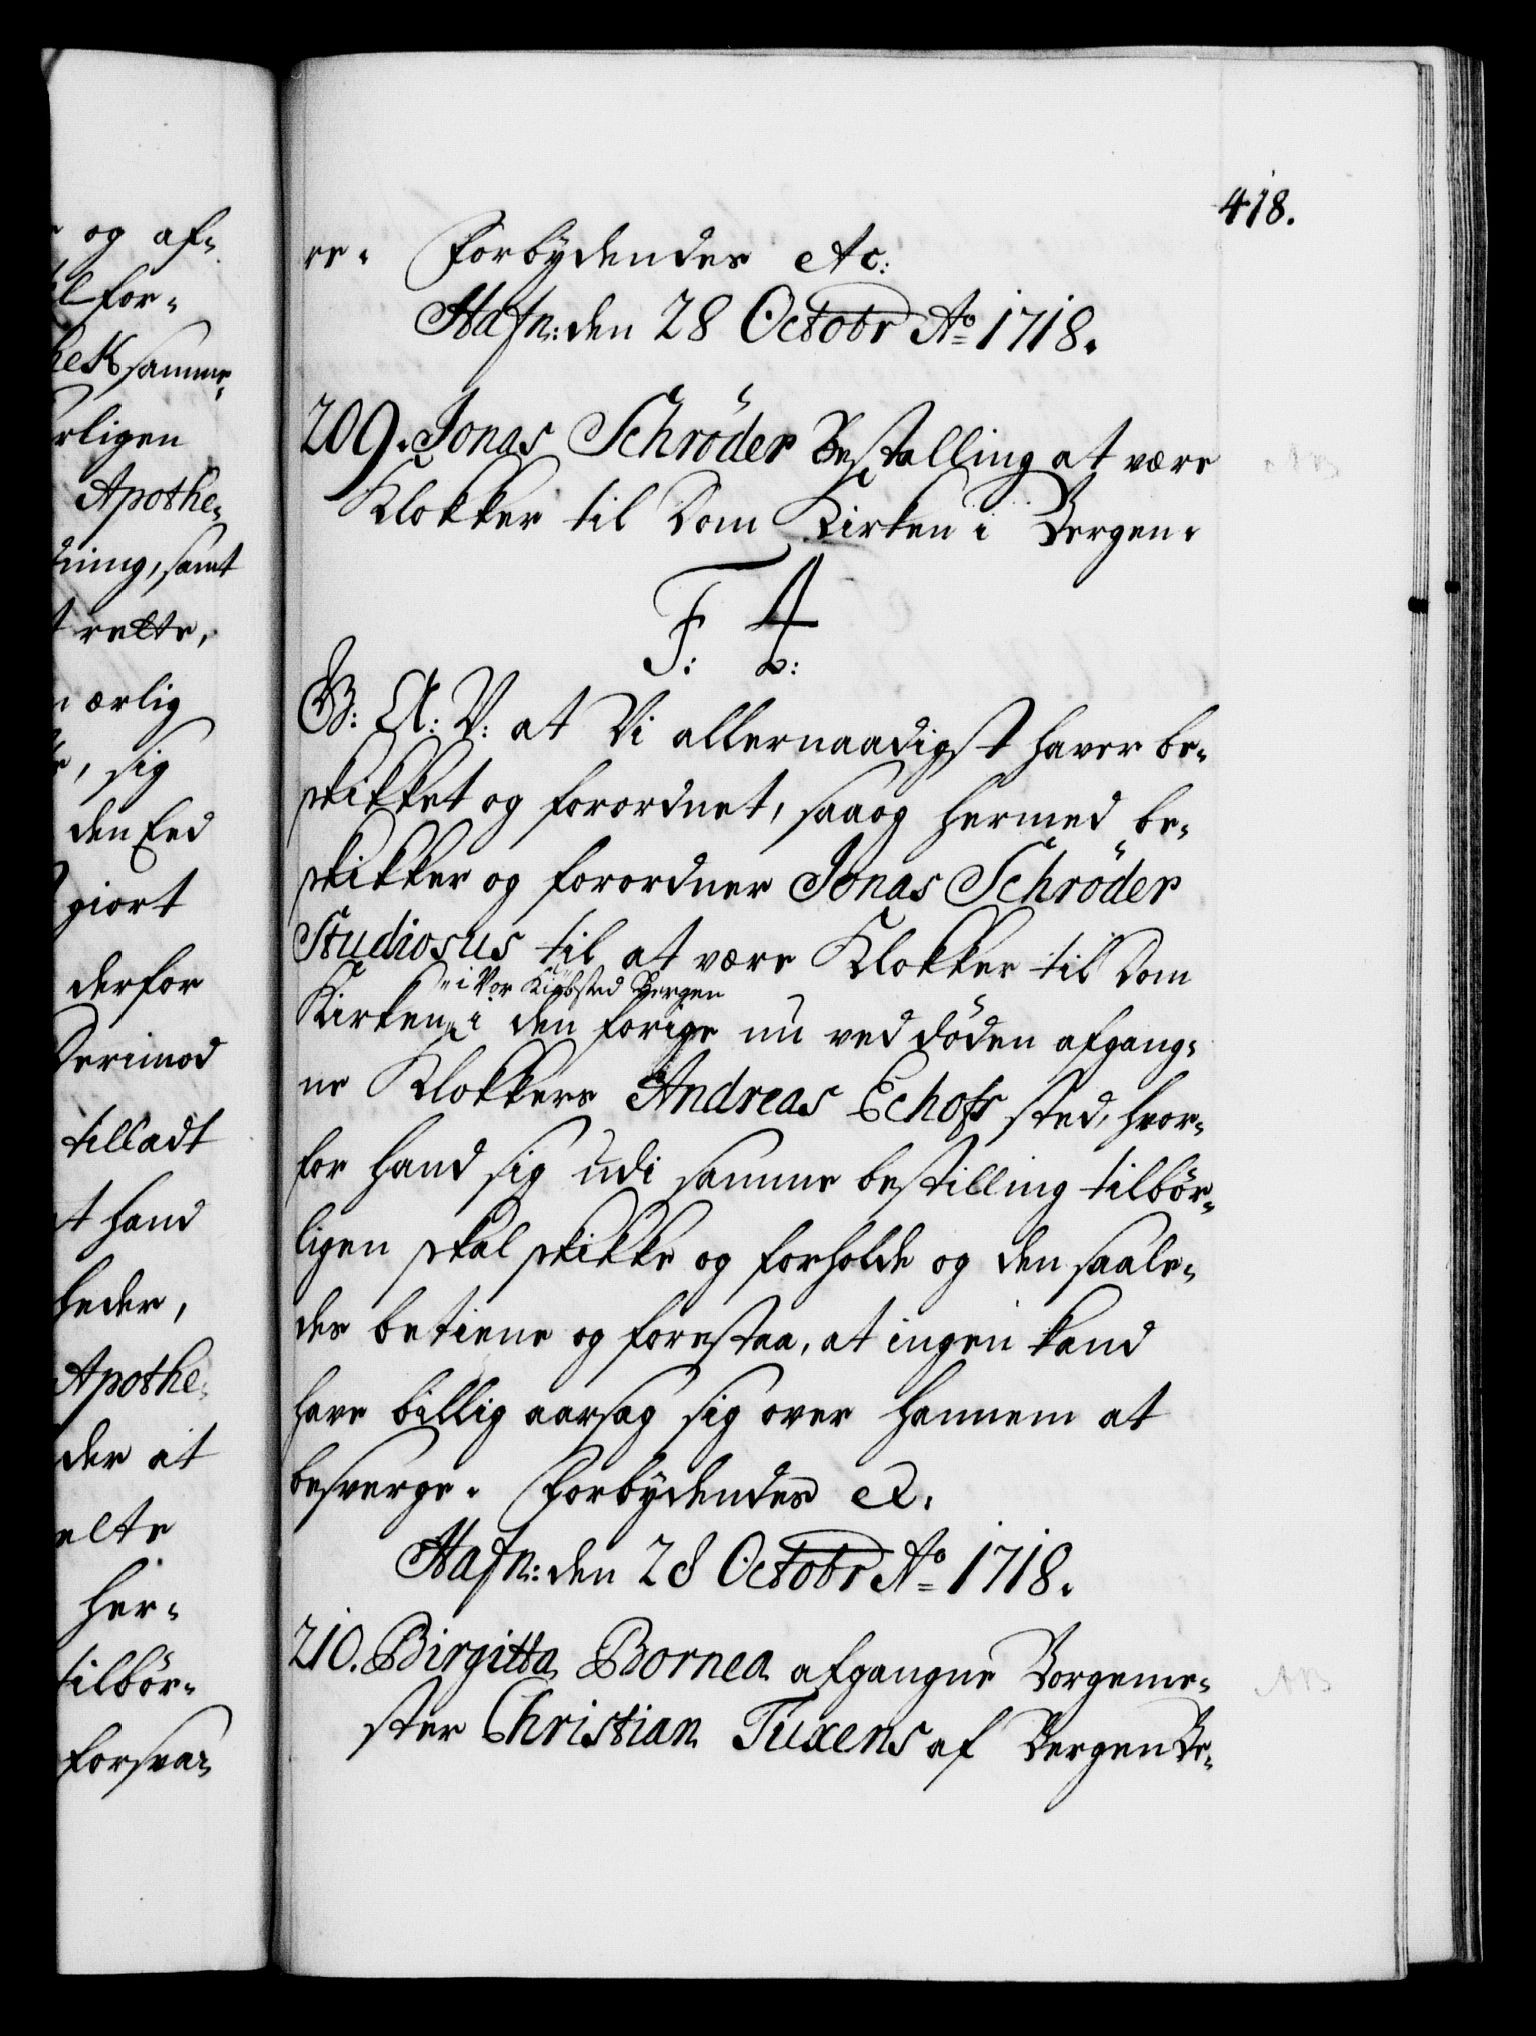 418.
re. Forbydendes Ac:
Hafn: den 28 Octobr Ao 1718.
209. Jonas Schröder Bestalling at være
Klokker til Dom Kirken i Bergen.
F: 4:
G: A: V: at Vi allernaadigst haver be-
skikket og forordnet, saa og hermed be-
skikker og forordner Jonas Schröder
Studiosus til at være Klokker til Dom
i Vor Kiøbsted Bergen
Kirken i den forige nu ved døden afgang-
ne Klokkers Andreas Echofs sted, hvor-
for hand sig udi samme bestilling tilbør-
ligen skal skikke og forholde og den saale-
des betiene og forestaa, at ingen kand
have billig aarsag sig over hannem at
besverge. Forbydendes etc.
Hafn: den 28 Octobr Ao 1718.
210. Birgitta Bornea afgangne Borgeme-
ster Christian Tuxens af Bergen Be-
og af-
for-
samme
rligen
Apothe-
samt
rette,
ærlig
sig
den Eed
giort
derfor
Derimod
tilladt
hand
heder,
Apothe-
der at
elte
her-
tilbør-
forsva-